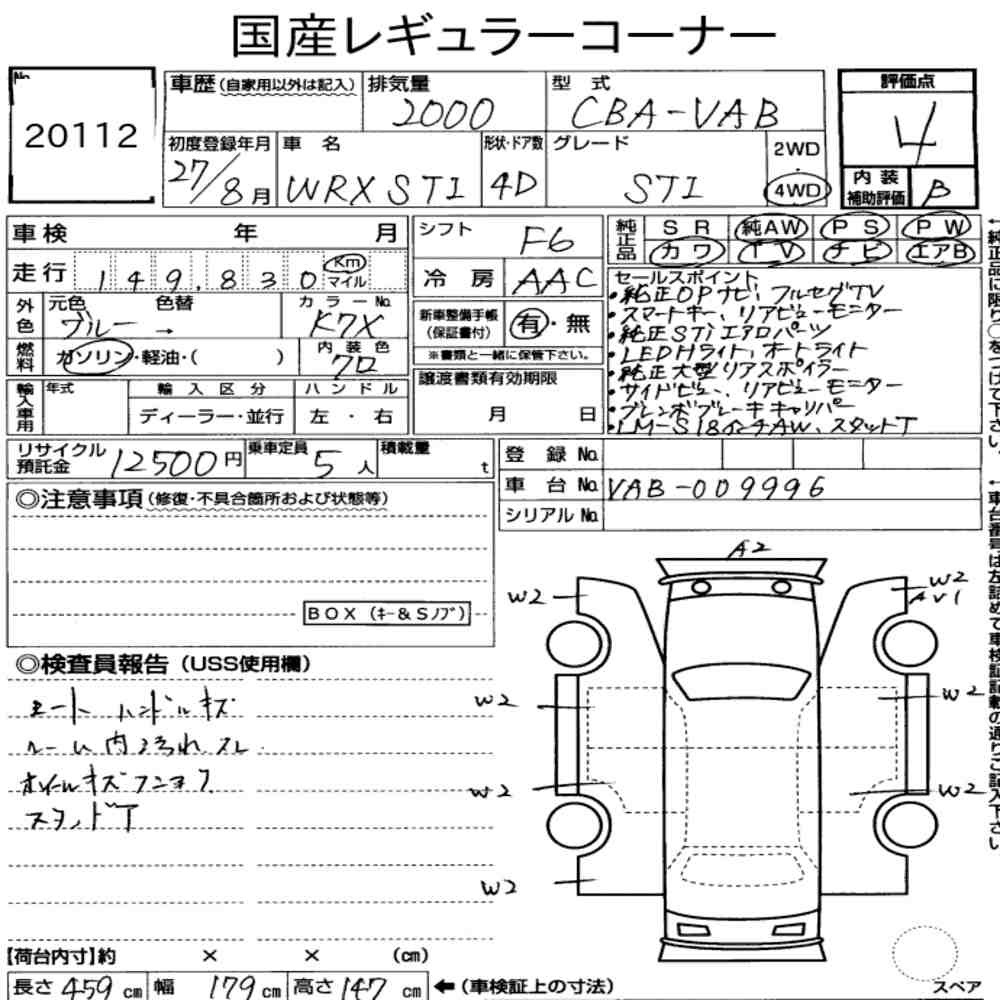 国産レギュラーコーナー
No.
20112
車歴(自家用以外は記入)
排気量
2000
型式
CBA-VAB
評価点
4
初度登録年月
27/8月
車名
WRX STI
形状・ドア数
4D
グレード
STI
2WD
・
4WD
内装
補助評価
B
車検 年 月
シフト
F6
純正品
SR 純AW PS PW
カワ TV ナビ エアB
走行 149,830 Km マイル
冷房 AAC
セールスポイント
・純正OPナビ、フルセグTV
・スマートキー、リアビューモニター
・純正STiエアロパーツ
・LEDHライト、オートライト
・純正大型リアスポイラー
・サイドビュー、リアビューモニター
・ブレンボブレーキキャリパー
・LM-S18インチAW、スタッドT
外色
元色 色替
ブルー →
カラーNo.
K7X
新車整備手帳
(保証書付)
有・無
※書類と一緒に保管下さい。
燃料
ガソリン・軽油・( )
内装色
クロ
譲渡書類有効期限
月 日
輸入車用
年式
輸入区分
ディーラー・並行
ハンドル
左・右
リサイクル
預託金
12500円
乗車定員
5人
積載量
t
登録No.
車台No.
VAB-009996
シリアルNo.
◎注意事項(修復・不具合箇所および状態等)
BOX (キー&Sノブ)
◎検査員報告(USS使用欄)
シートハンドルキズ
ルーム内汚れスレ
ホイールキズ
スタッドT
A2
W2
W2
AV1
W2
W2
W2
W2
W2
【荷台内寸】約 × × (cm)
長さ 459 cm 幅 179 cm 高さ 147 cm
←(車検証上の寸法)
スペア
←純正品に限り○をつけて下さい。
←車台番号は左詰めで車検証記載の通りご記入下さい。